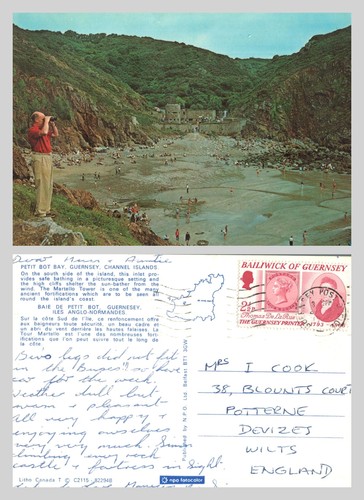 Dear Mum & Auntie
PETIT BOT BAY, GUERNSEY, CHANNEL ISLANDS
On the south side of the island, this inlet pro-
vides safe bathing in a picturesque setting and
the high cliffs shelter the sun-bather from the
wind. The Martello Tower is one of the many
ancient fortifications which are to be seen all
round the island's coast.
BAIE DE PETIT BOT, GUERNESEY,
ILES ANGLO-NORMANDES.
Sur la côte Sud de l'île, ce renfoncement offre
aux baigneurs toute sécurité, un beau cadre et
un abri du vent derrière les hautes falaises. La
Tour Martello est l'une des nombreuses for-
tifications que l'on peut suivre tout le long de
la côte.
legs did not fit
in the "Buges" so have
car for the week,
Weather dull but
warm & pleasant
All very happy &
enjoying ourselves
very very much. Simon
climbing every rock
castle & fortress in sight
Published by N.P.O. Ltd. Belfast BT7 3GW
BAILIWICK OF GUERNSEY
2½p
Thomas De La Rue
THE GUERNSEY PRINTER 1793
MRS I COOK
38, BLOUNTS COURT
POTTERNE
DEVIZES
WILTS
ENGLAND
Litho Canada T C CZ115 8Z2948
npo fotocolor